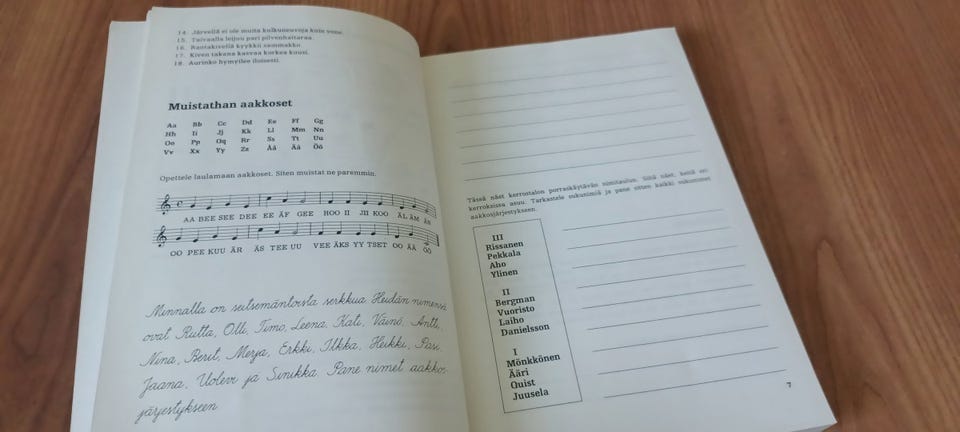 14. Järvellä ei ole muita kulkuneuvoja kuin vene.
15. Taivaalla leijuu pari pilvenhattaraa.
16. Rantakivellä kyykkii sammakko.
17. Kiven takana kasvaa korkea kuusi.
18. Aurinko hymyilee iloisesti.
Muistathan aakkoset
Aa Bb Cc Dd Ee Ff Gg
Hh Ii Jj Kk Ll Mm Nn
Oo Pp Qq Rr Ss Tt Uu
Vv Xx Yy Zz Åå Ää Öö
Opettele laulamaan aakkoset. Siten muistat ne paremmin.
AA BEE SEE DEE EE ÄF GEE HOO II JII KOO ÄL ÄM ÄN
OO PEE KUU ÄR ÄS TEE UU VEE ÄKS YY TSET OO ÄÄ ÖÖ
Minnalla on seitsemäntoista serkkua. Heidän nimensä
ovat Riitta, Olli, Timo, Leena, Kati, Väinö, Antti,
Nina, Berit, Merja, Erkki, Ilkka, Heikki, Pasi,
Jaana, Uolevi ja Sinikka. Pane nimet aakkos-
järjestykseen.
Tässä näet kerrostalon porraskäytävän nimitaulun. Siitä näet, keitä eri
kerroksissa asuu. Tarkastele sukunimiä ja pane sitten kaikki sukunimet
aakkosjärjestykseen.
III
Rissanen
Pekkala
Aho
Ylinen
II
Bergman
Vuoristo
Laiho
Danielsson
I
Mönkkönen
Ääri
Quist
Juusela
7